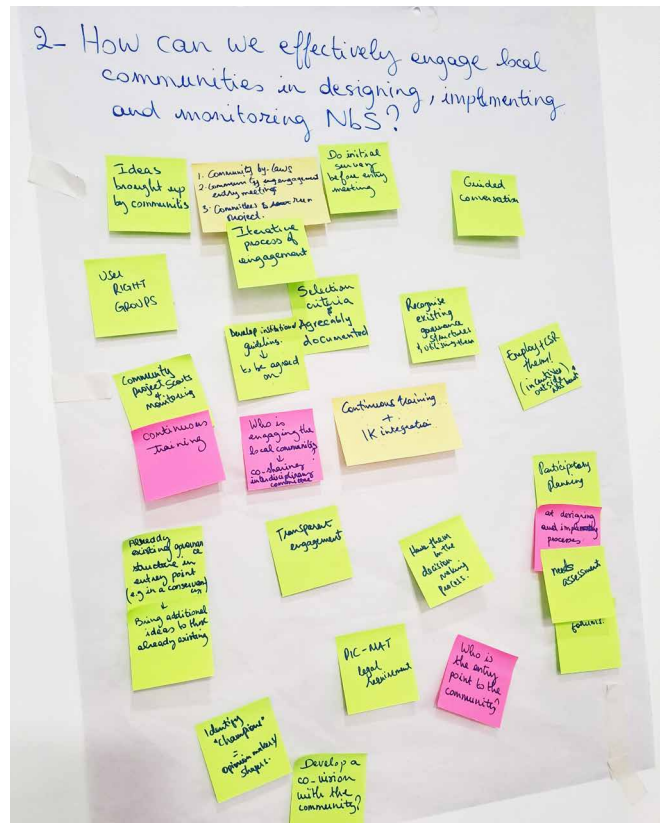 2- How can we effectively engage local
communities in designing, implementing
and monitoring NbS?
Ideas
brought up
by communities
1. Community by-laws
2. Community engagement
entry meeting
3. Committees to run
project.
Do initial
survey
before entry
meeting
Guided
conversation
Iterative
process of
engagement
User
RIGHT
GROUPS
Selection
criteria
Agreeably
documented
Develop institutional
guideline.
↓
to be agreed
on
Recognise
existing
governance
structures
& utilise them
Employ + CSR
them!
(incentives)
outside
Community
Project Scouts
&
monitoring
continuous
training
Who is
engaging the
local communities
↓
co-sharing
interdisciplinary
committee
Continuous training
+
IK integration.
Participatory
planning
at designing
and implementing
processes.
needs
assessment
forums.
Already
existing governance
structure in
entry point
(e.g in a conservancy)
↓
Bring additional
ideas to those
already existing
Transparent
engagement
Have them
in the
decision
making
process.
PIC-MAT
legal
requirement
Who is
the entry
point to the
community?
Identify
"champions"
=
opinion makers/
shapers.
Develop a
co-vision
with the
community?